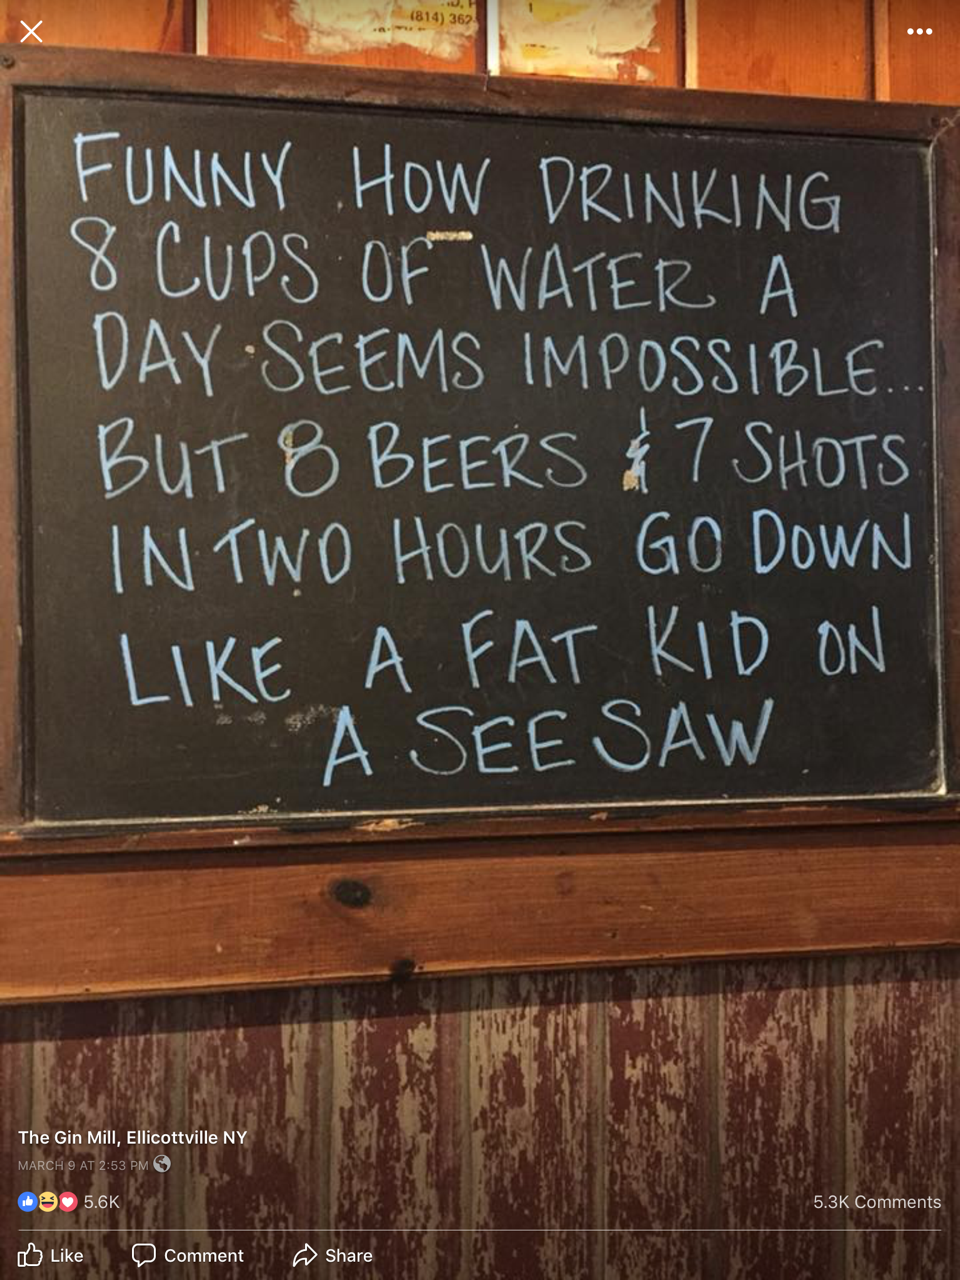 (814) 362-
FUNNY HOW DRINKING
8 CUPS OF WATER A
DAY SEEMS IMPOSSIBLE...
BUT 8 BEERS & 7 SHOTS
IN TWO HOURS GO DOWN
LIKE A FAT KID ON
A SEESAW
The Gin Mill, Ellicottville NY
MARCH 9 AT 2:53 PM
5.6K 5.3K Comments
Like Comment Share